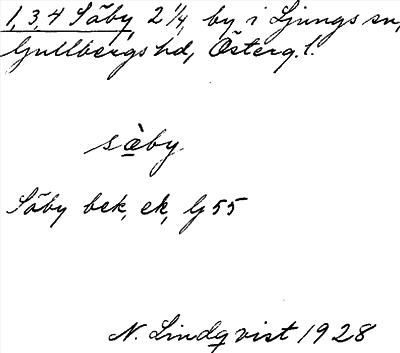 1, 3, 4 Säby, 2 1/4, by i Ljungs sn,
Gullbergs hd, Österg. l.
sæ̀by.
Säby bek, ek, G 55
N. Lindqvist 1928